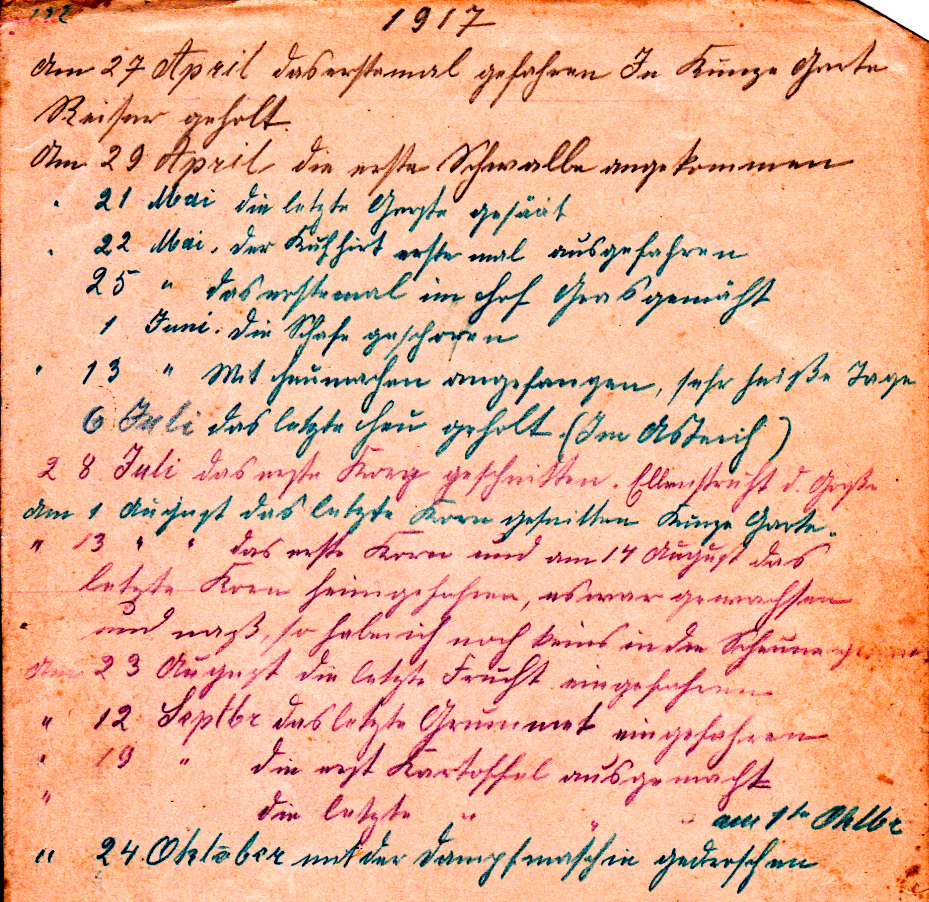 132
1917
Am 27 April das erstemal gefahren In Kunze Garte
Reiser geholt.
Am 29 April die erste Schwalbe angekommen
" 21 Mai die letzte Gerste gesäät
" 22 Mai. der Kuhhirt erste mal ausgefahren
25 " das erstemal im Hof Gras gemäht
1 Juni. die Schafe geschoren
" 13 " Mit Heumachen angefangen, sehr heiße Tage
6 Juli das letzte Heu geholt. (Im Asterich)
28 Juli das erste Korn geschnitten. Ellenstruht d. Große
Am 1 August das letzte Korn geschnitten Kunze Garte.
" 13 " " das erste Korn und am 17 August das
letzte Korn heimgefahren, es war gewachsen
und naß, so habe ich noch keins in die Scheune
Am 23 August die letzte Frucht eingefahren
" 12 Septbr das letzte Grummet eingefahren
" 19 " die erst Kartoffel ausgemacht
" die letzte " " " am 1ten Oktbr
" 24 Oktober mit der Dampfmaschin gedroschen